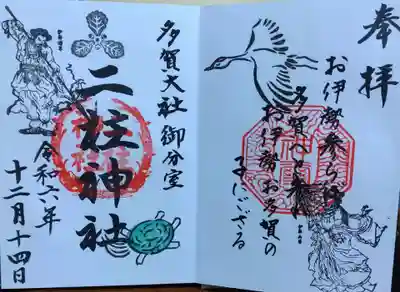 奉拝
お伊勢参らば
お多賀へ参れ
お伊勢お多賀の
子でござる
多賀大社御分室
二柱神社
令和六年
十二月十四日